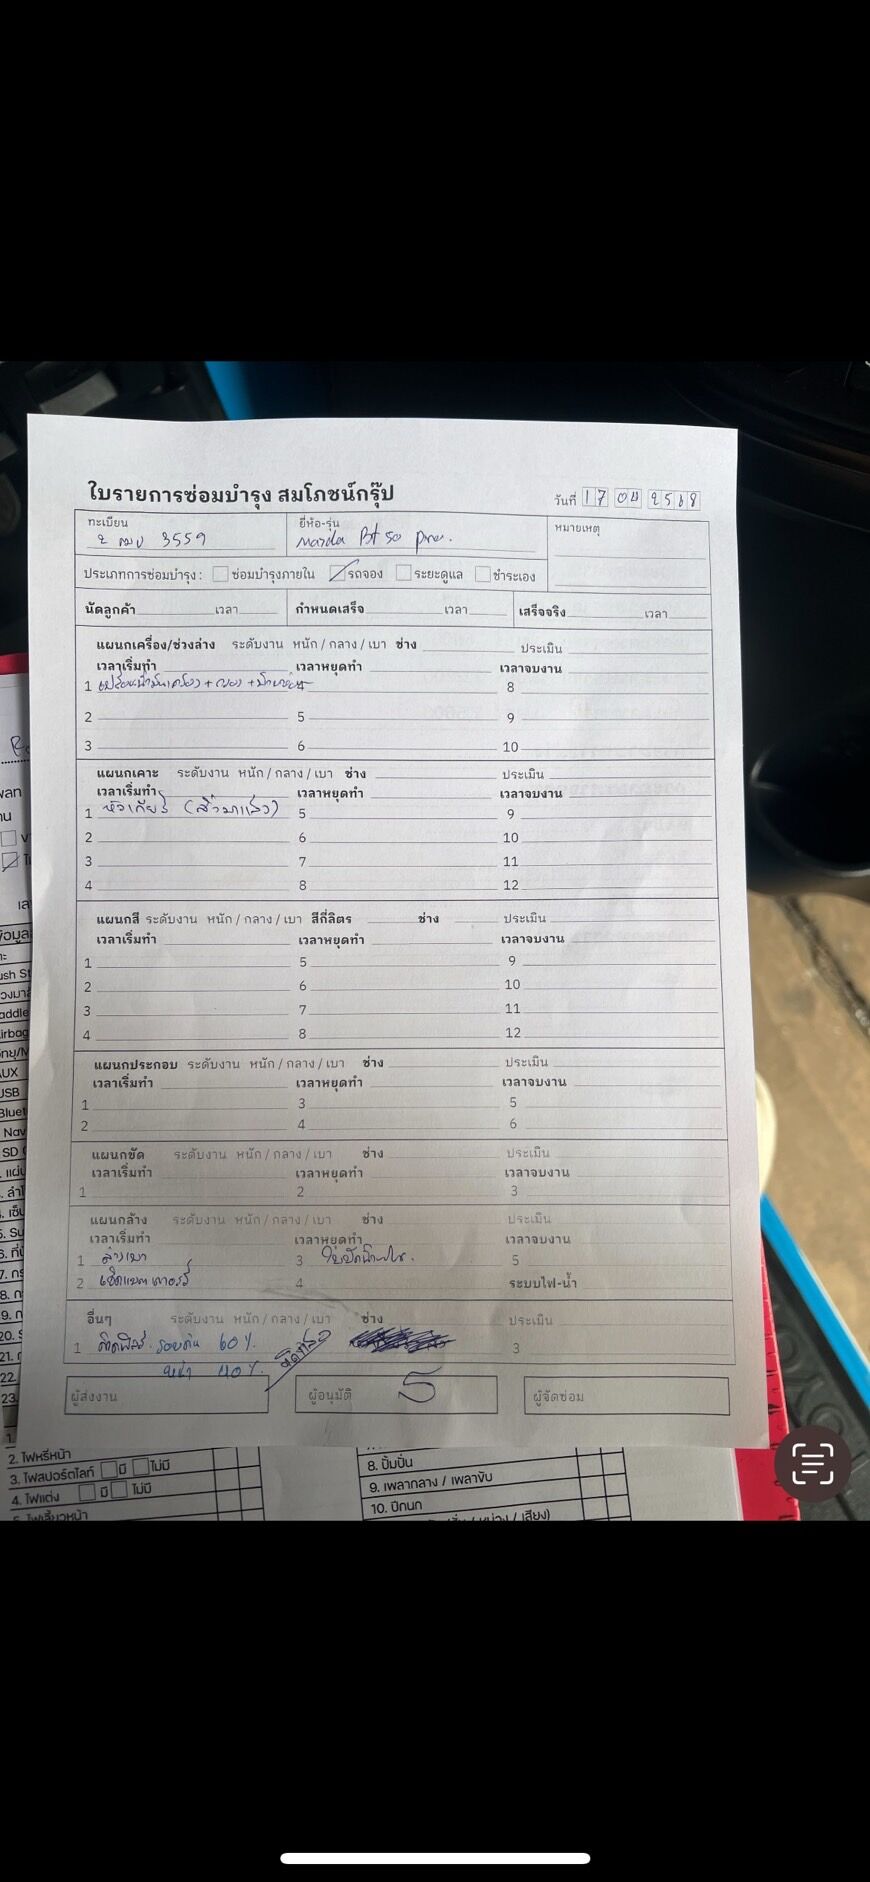 ใบรายการซ่อมบำรุง สมโภชน์กรุ๊ป
วันที่ 17 04 2568
ทะเบียน ยี่ห้อ-รุ่น หมายเหตุ
2 3559 Mazda Bt 50 pro.
ประเภทการซ่อมบำรุง : ซ่อมบำรุงภายใน รถจอง ระยะดูแล ชำระเอง
นัดลูกค้า เวลา กำหนดเสร็จ เวลา เสร็จจริง เวลา
แผนกเครื่อง/ช่วงล่าง ระดับงาน หนัก / กลาง / เบา ช่าง ประเมิน
เวลาเริ่มทำ เวลาหยุดทำ เวลาจบงาน
1 เปลี่ยนน้ำมันเครื่อง + กรอง + 4 8
2 5 9
3 6 10
แผนกเคาะ ระดับงาน หนัก / กลาง / เบา ช่าง ประเมิน
เวลาเริ่มทำ เวลาหยุดทำ เวลาจบงาน
1 หัวเกียร์ (สั่งมาแล้ว) 5 9
2 6 10
3 7 11
4 8 12
แผนกสี ระดับงาน หนัก / กลาง / เบา สีกี่ลิตร ช่าง ประเมิน
เวลาเริ่มทำ เวลาหยุดทำ เวลาจบงาน
1 5 9
2 6 10
3 7 11
4 8 12
แผนกประกอบ ระดับงาน หนัก / กลาง / เบา ช่าง ประเมิน
เวลาเริ่มทำ เวลาหยุดทำ เวลาจบงาน
1 3 5
2 4 6
แผนกขัด ระดับงาน หนัก / กลาง / เบา ช่าง ประเมิน
เวลาเริ่มทำ เวลาหยุดทำ เวลาจบงาน
1 2 3
แผนกล้าง ระดับงาน หนัก / กลาง / เบา ช่าง ประเมิน
เวลาเริ่มทำ เวลาหยุดทำ เวลาจบงาน
1 ล้างเบา 3 ใบปัดน้ำฝน. 5
2 เช็คแบตเตอรรี่ 4 ระบบไฟ-น้ำ
อื่นๆ ระดับงาน หนัก / กลาง / เบา ช่าง ประเมิน
1 ติดฟิล์ม รอบคัน 60 %. 3
หน้า 40 %.
ผู้ส่งงาน ผู้อนุมัติ ผู้จัดซ่อม
2. ไฟหรี่หน้า
3. ไฟสปอร์ตไลท์ มี ไม่มี
4. ไฟแต่ง มี ไม่มี
8. ปั้มปั่น
9. เพลากลาง / เพลาขับ
10. ปีกนก